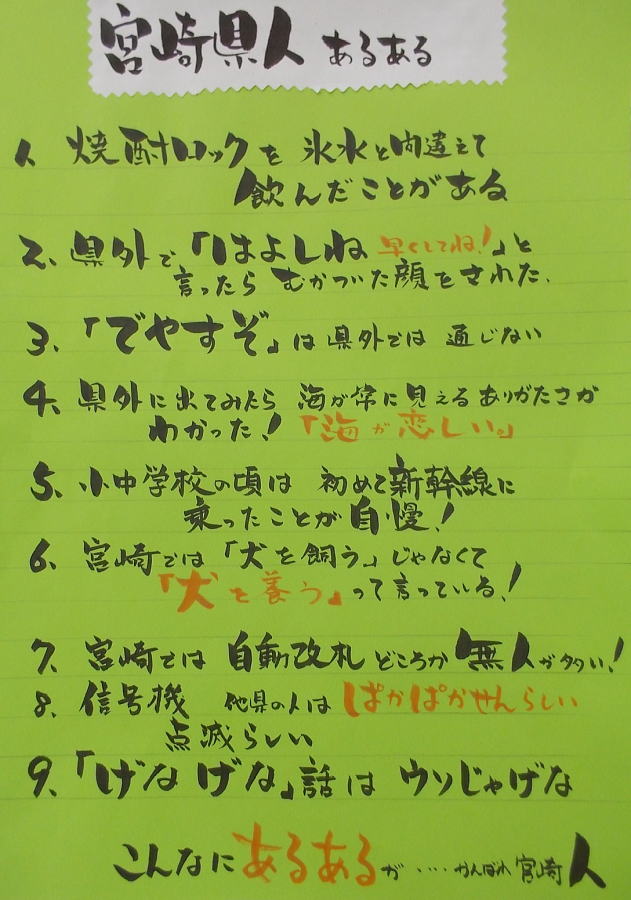 宮崎県人 あるある
1、焼酎ロックを 氷水と間違えて
飲んだことがある
2、県外で、「はよしね 早くしてね!」と
言ったら むかついた顔をされた、
3、「でやすぞ」は 県外では 通じない
4、県外に出てみたら 海が常に見えるありがたさが
わかった!「海が恋しい。」
5、小中学校の頃は 初めて新幹線に
乗ったことが自慢!
6、宮崎では「犬を飼う」じゃなくて
「犬を養う」って言っている!
7、宮崎では 自動改札どころか 無人が多い!
8、信号機 他県の人は ぱかぱかせんらしい
点滅らしい
9、「げなげな」話は ウソじゃげな
こんなにあるあるが・・・・がんばれ宮崎人